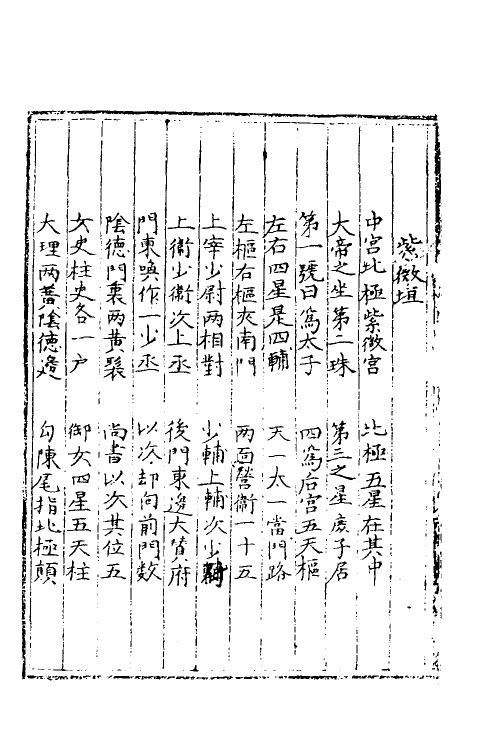 紫微垣
中宮北極紫微宮　北極五星在其中
大帝之坐第二珠　第三之星庻子居
第一號曰為太子　四為后宮五天樞
左右四星是四輔　天一太一當門路
左樞右樞夾南門　兩面營衛一十五
上宰少尉兩相對　少輔上輔次少輔
上衛少衛次上丞　後門東邊大贊府
門東喚作一少丞　以次却向前門数
陰德門裏两黄聚　尚書以次其位五
女史柱史各一户　御女四星五天柱
大理两黄陰德邊　勾陳尾指北極顛